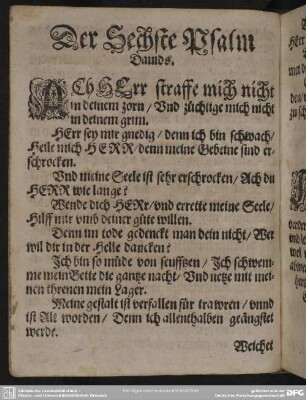 Der Sechste Psalm
Dauids.
ACh HErr straffe mich nicht
in deinem zorn / Vnd züchtige mich nicht
in deinem grim.
HErr sey mir gnedig / denn ich bin schwach /
Heile mich HERR / denn meine Gebeine sind er-
schrocken.
Vnd meine Seele ist sehr erschrocken / Ach du
HERR wie lange?
Wende dich HERr / vnd errette meine Seele /
Hilff mir vmb deiner güte willen.
Denn im tode gedenckt man dein nicht / Wer
wil dir in der Helle dancken?
Ich bin so müde von seufftzen / Ich schwem-
me mein Bette die gantze nacht / Vnd netze mit mei-
nen threnen mein Lager.
Meine gestalt ist verfallen für trawren / vnnd
ist Alt worden / Denn ich allenthalben geängstet
werde.
Weichet